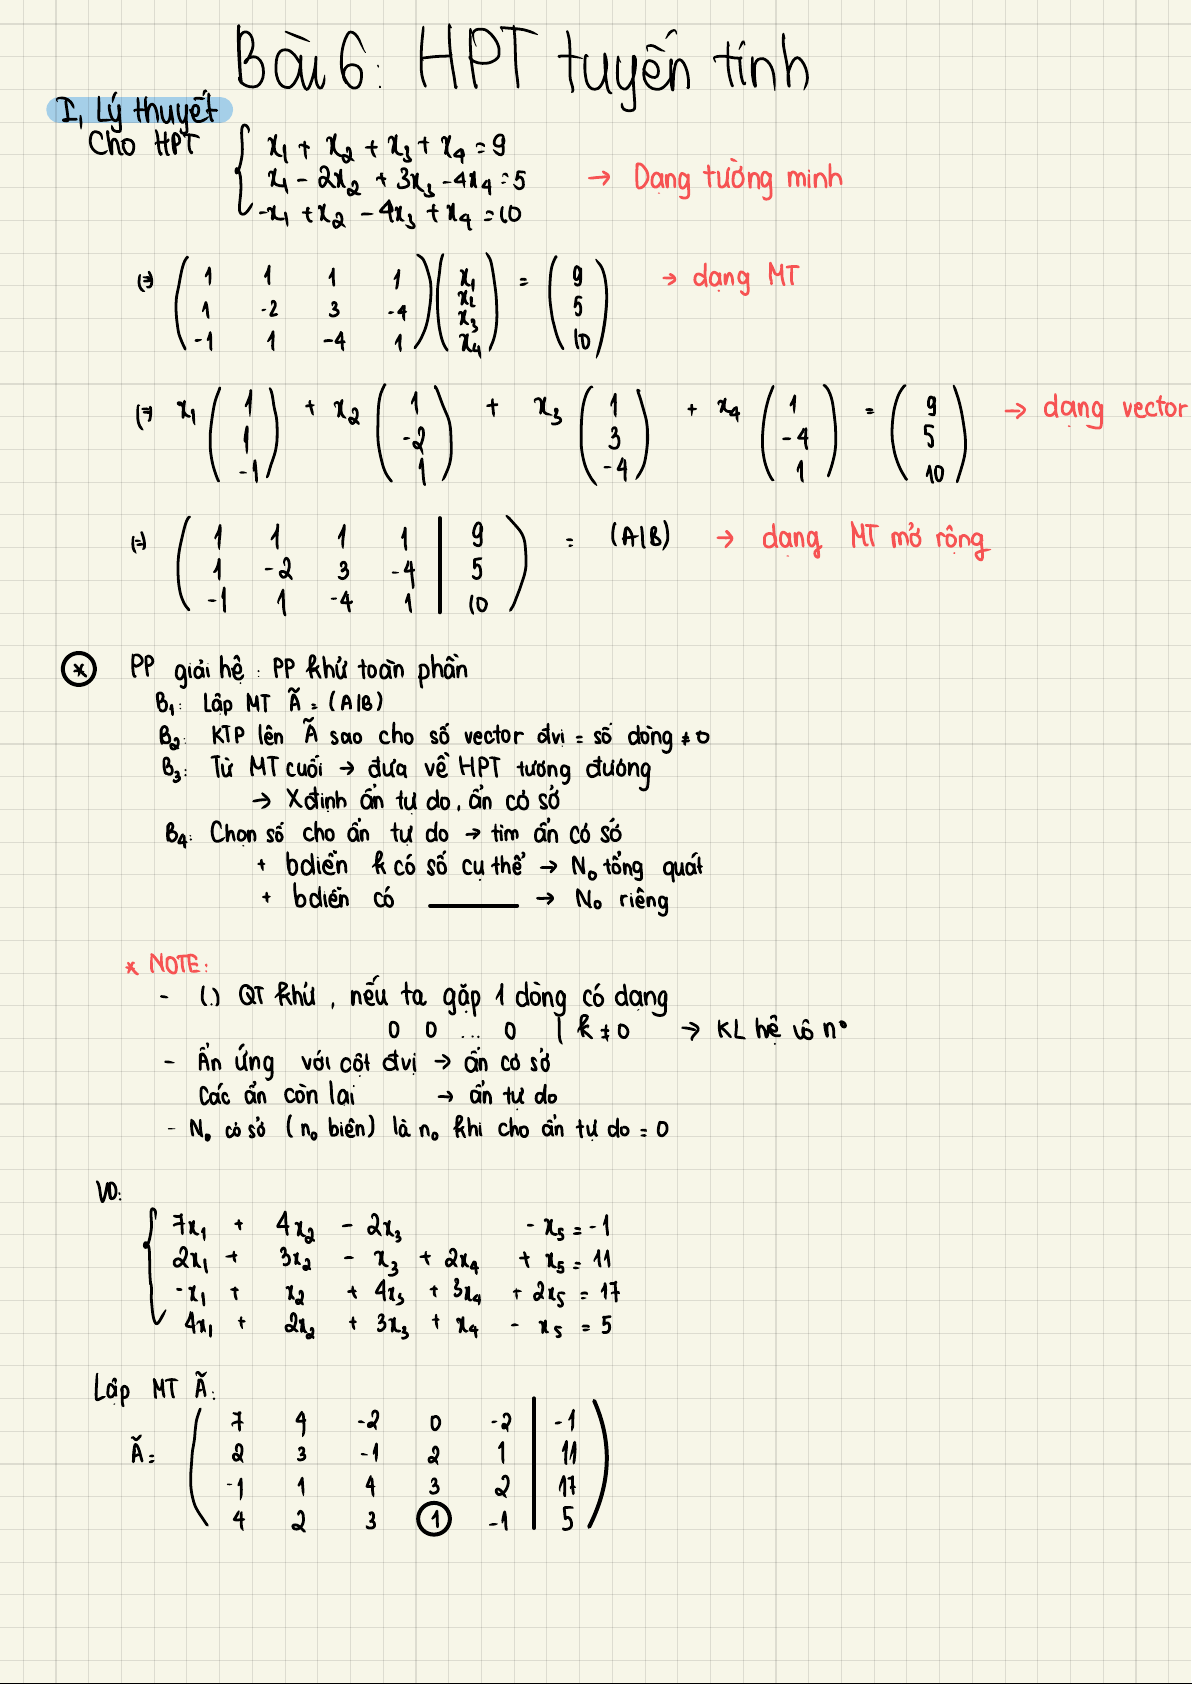 Bài 6: HPT tuyến tính
I, Lý thuyết
Cho HPT
x₁ + x₂ + x₃ + x₄ = 9
x₁ - 2x₂ + 3x₃ - 4x₄ = 5 → Dạng tường minh
-x₁ + x₂ - 4x₃ + x₄ = 10
(=) ( 1 1 1 1 ) ( x₁ ) = ( 9 ) → dạng MT
1 -2 3 -4 x₂ 5
-1 1 -4 1 x₃ 10
x₄
(=) x₁ ( 1 ) + x₂ ( 1 ) + x₃ ( 1 ) + x₄ ( 1 ) = ( 9 ) → dạng vector
1 -2 3 -4 5
-1 1 -4 1 10
(=) ( 1 1 1 1 | 9 ) = (A|B) → dạng MT mở rộng
1 -2 3 -4 | 5
-1 1 -4 1 | 10
* PP giải hệ : PP khử toàn phần
B₁: Lập MT Ã = (A|B)
B₂: KTP lên Ã sao cho số vector đvị = số dòng ≠ 0
B₃: Từ MT cuối → đưa về HPT tương đương
→ Xđịnh ẩn tự do, ẩn cơ sở
B₄: Chọn số cho ẩn tự do → tìm ẩn cơ sở
+ bdiễn k có số cụ thể → N₀ tổng quát
+ bdiễn có ——— → N₀ riêng
* NOTE:
- (.) QT khử, nếu ta gặp 1 dòng có dạng
0 0 ... 0 | k ≠ 0 → KL hệ vô n°
- Ẩn ứng với cột đvị → ẩn cơ sở
Các ẩn còn lại → ẩn tự do
- N₀ cơ sở (n₀ biên) là n₀ khi cho ẩn tự do = 0
VD:
7x₁ + 4x₂ - 2x₃ - x₅ = -1
2x₁ + 3x₂ - x₃ + 2x₄ + x₅ = 11
-x₁ + x₂ + 4x₃ + 3x₄ + 2x₅ = 17
4x₁ + 2x₂ + 3x₃ + x₄ - x₅ = 5
Lập MT Ã:
7 4 -2 0 -2 | -1
Ã = 2 3 -1 2 1 | 11
-1 1 4 3 2 | 17
4 2 3 1 -1 | 5